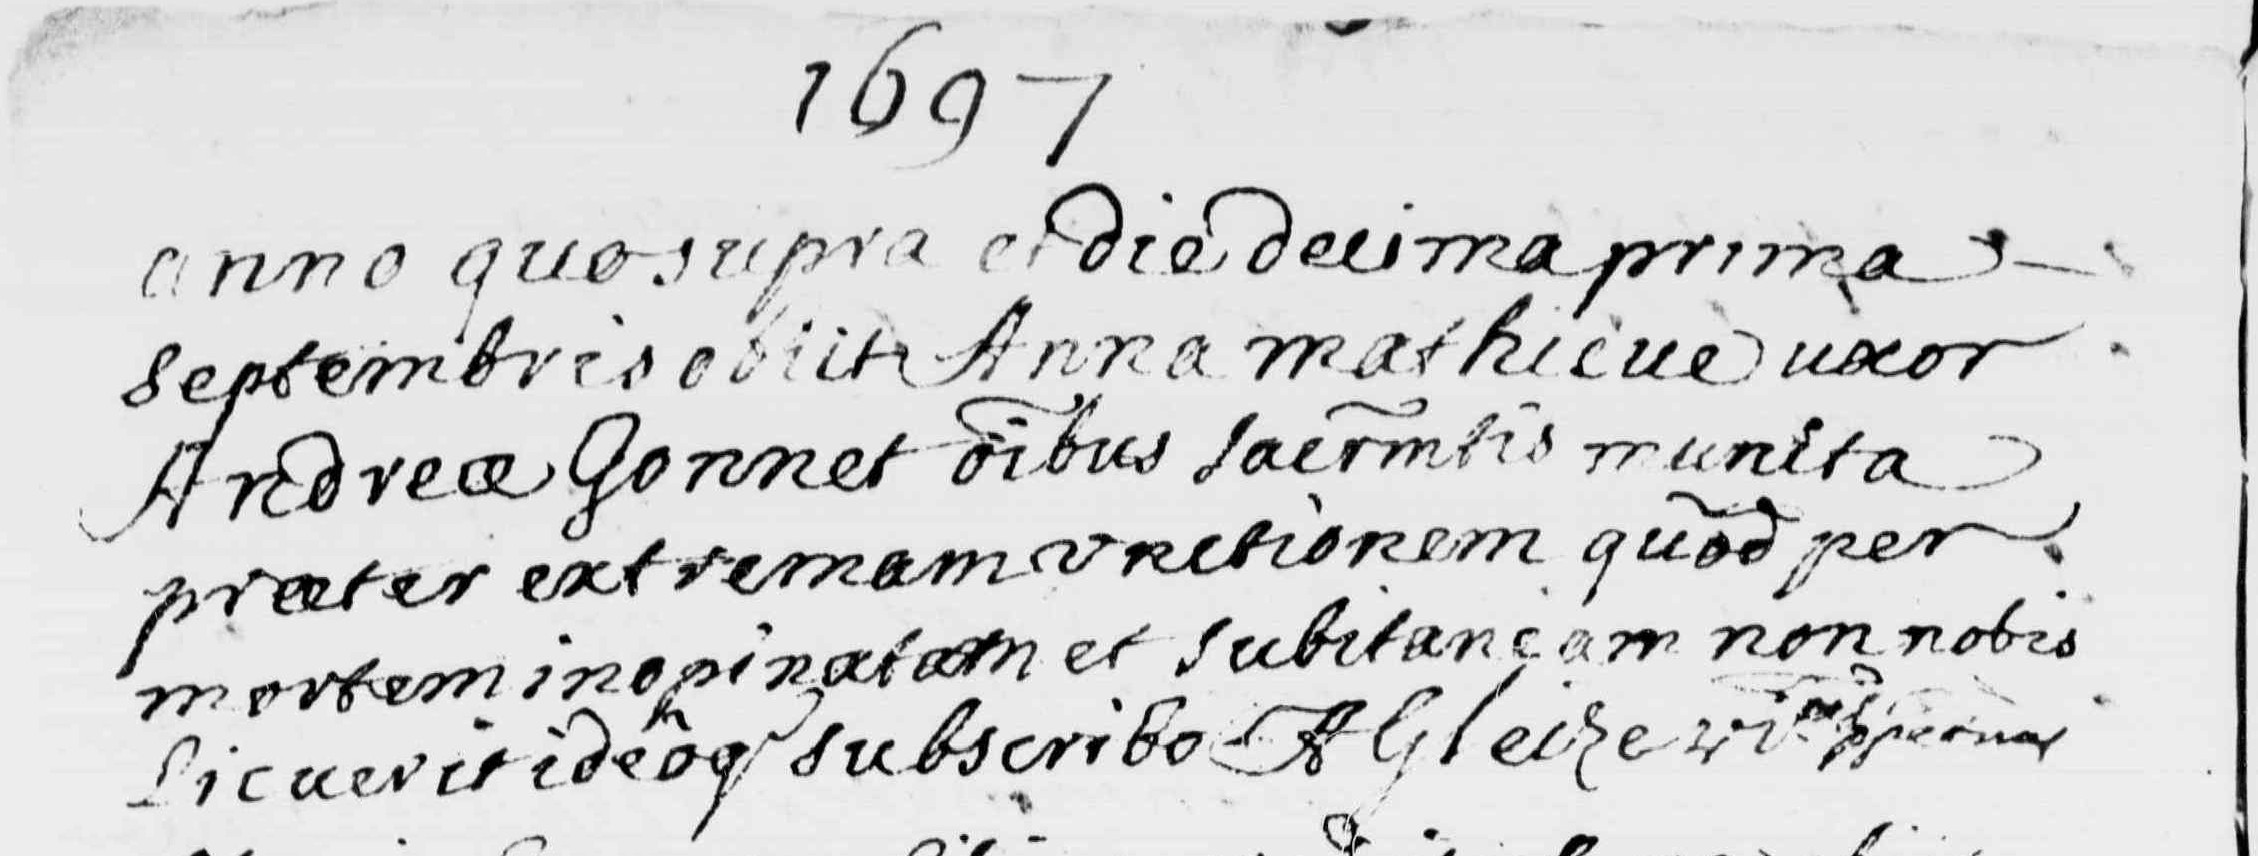 1697
anno quo supra et die decima prima
septembris obiit Anna mathieue uxor
Andreæ Gonnet oĩbus sacrm̃tis munita
præter extremam vnctionem quõd per
mortem inopinatam et subitaneam non nobis
licuerit ideoq subscribo A Gleize